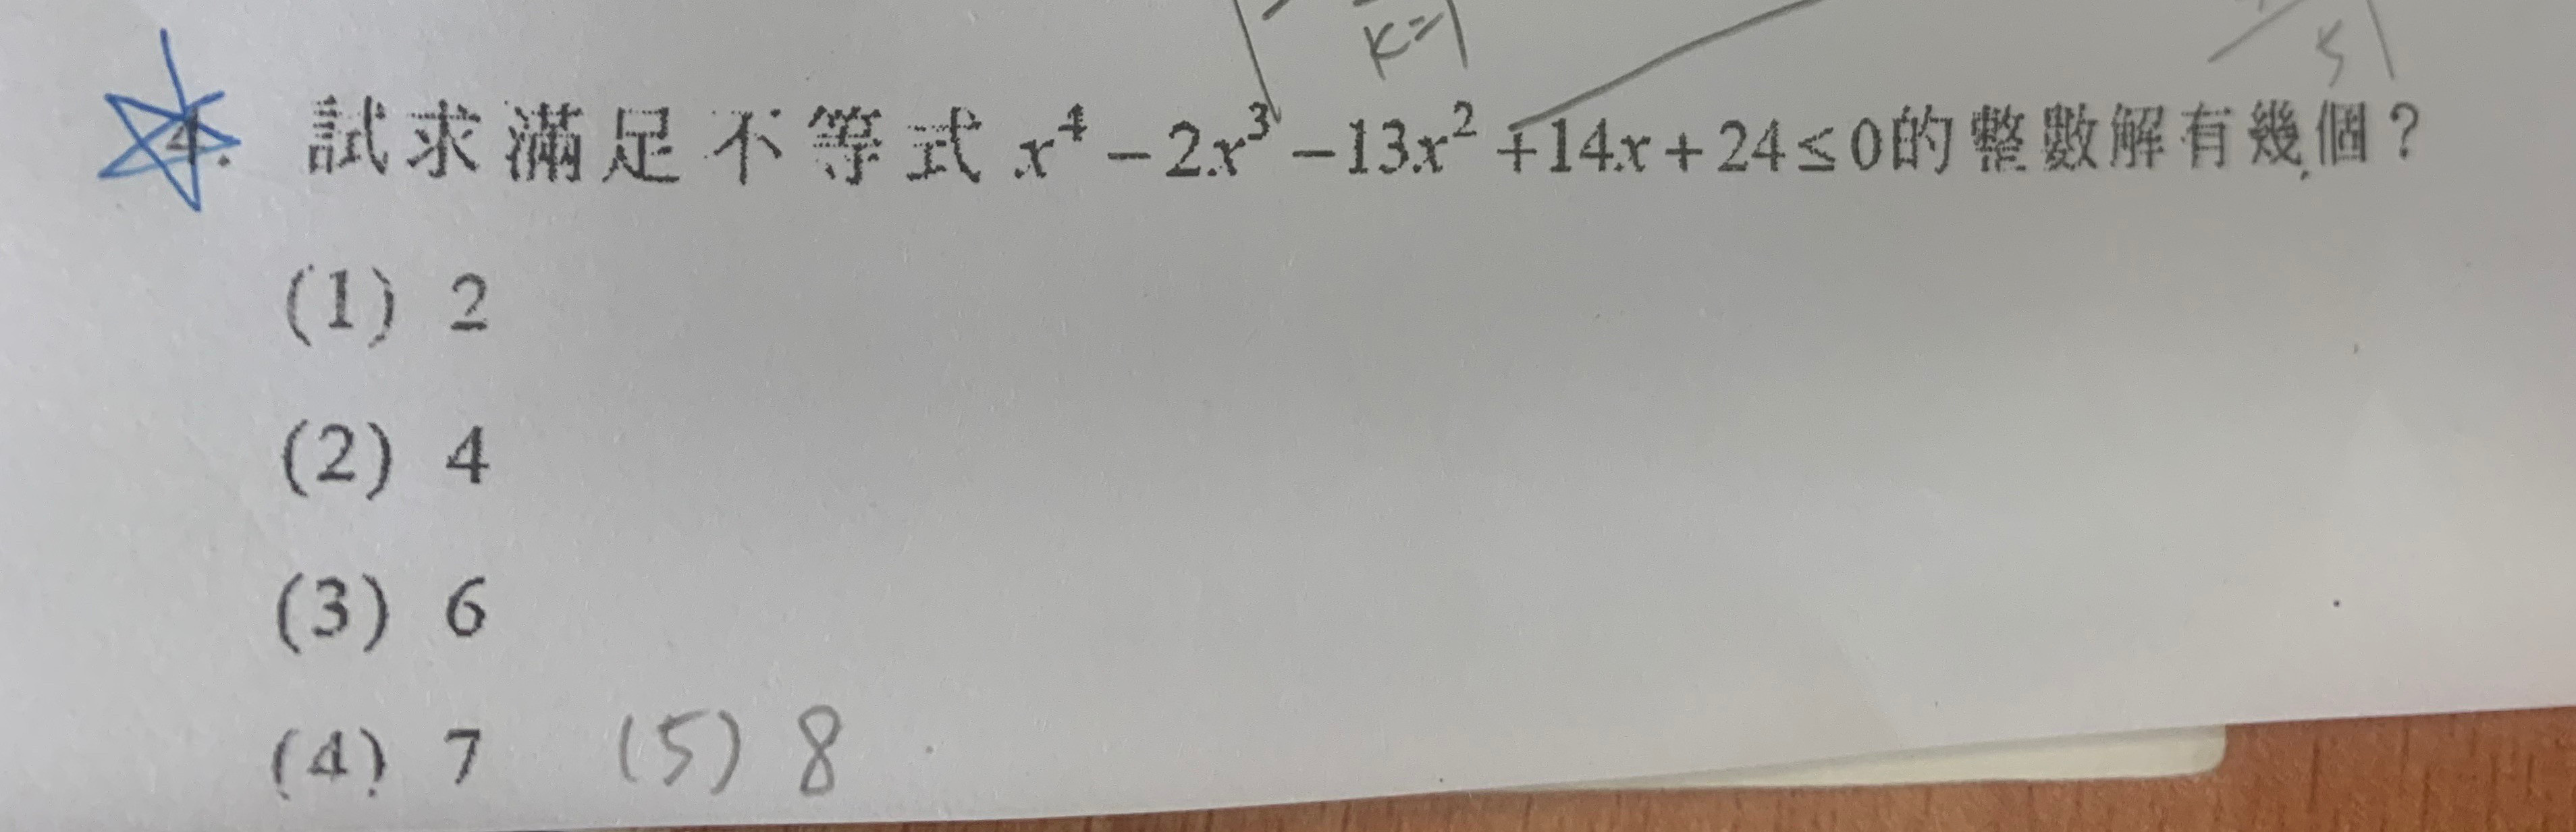 K=1
5
4. 試求滿足不等式 x⁴ − 2x³ − 13x² + 14x + 24 ≤ 0的整數解有幾個？
(1) 2
(2) 4
(3) 6
(4) 7 (5) 8